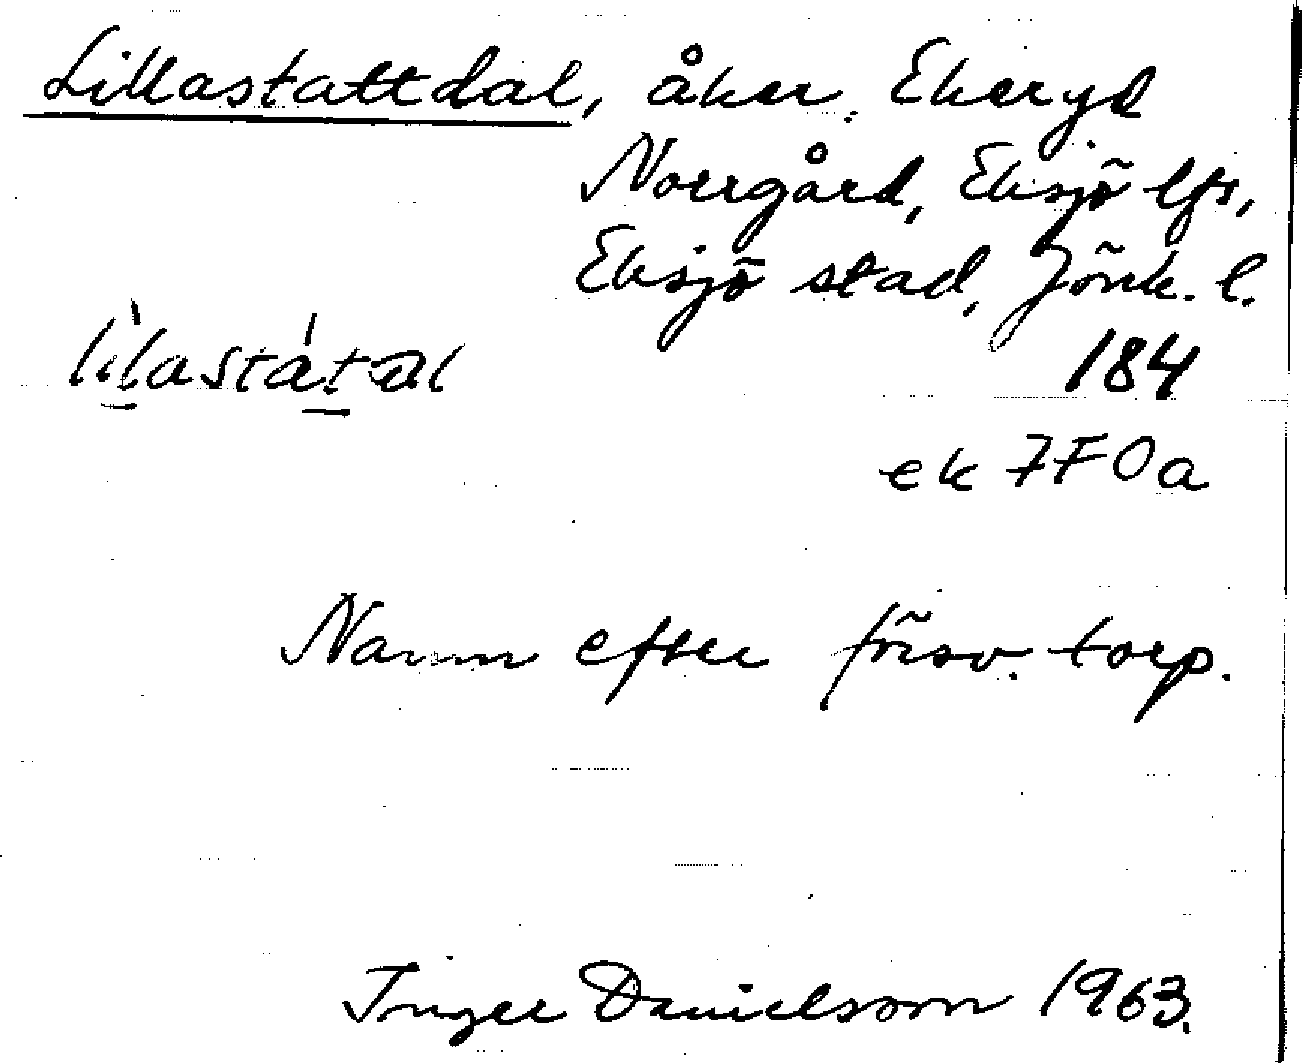 Lillastattdal, åker. Ekeryd
Norrgård, Eksjö lfs,
Eksjö stad, Jönk. l.
184
ek 7F0a
Namn efter försv. torp.
Inger Danielsson 1963.